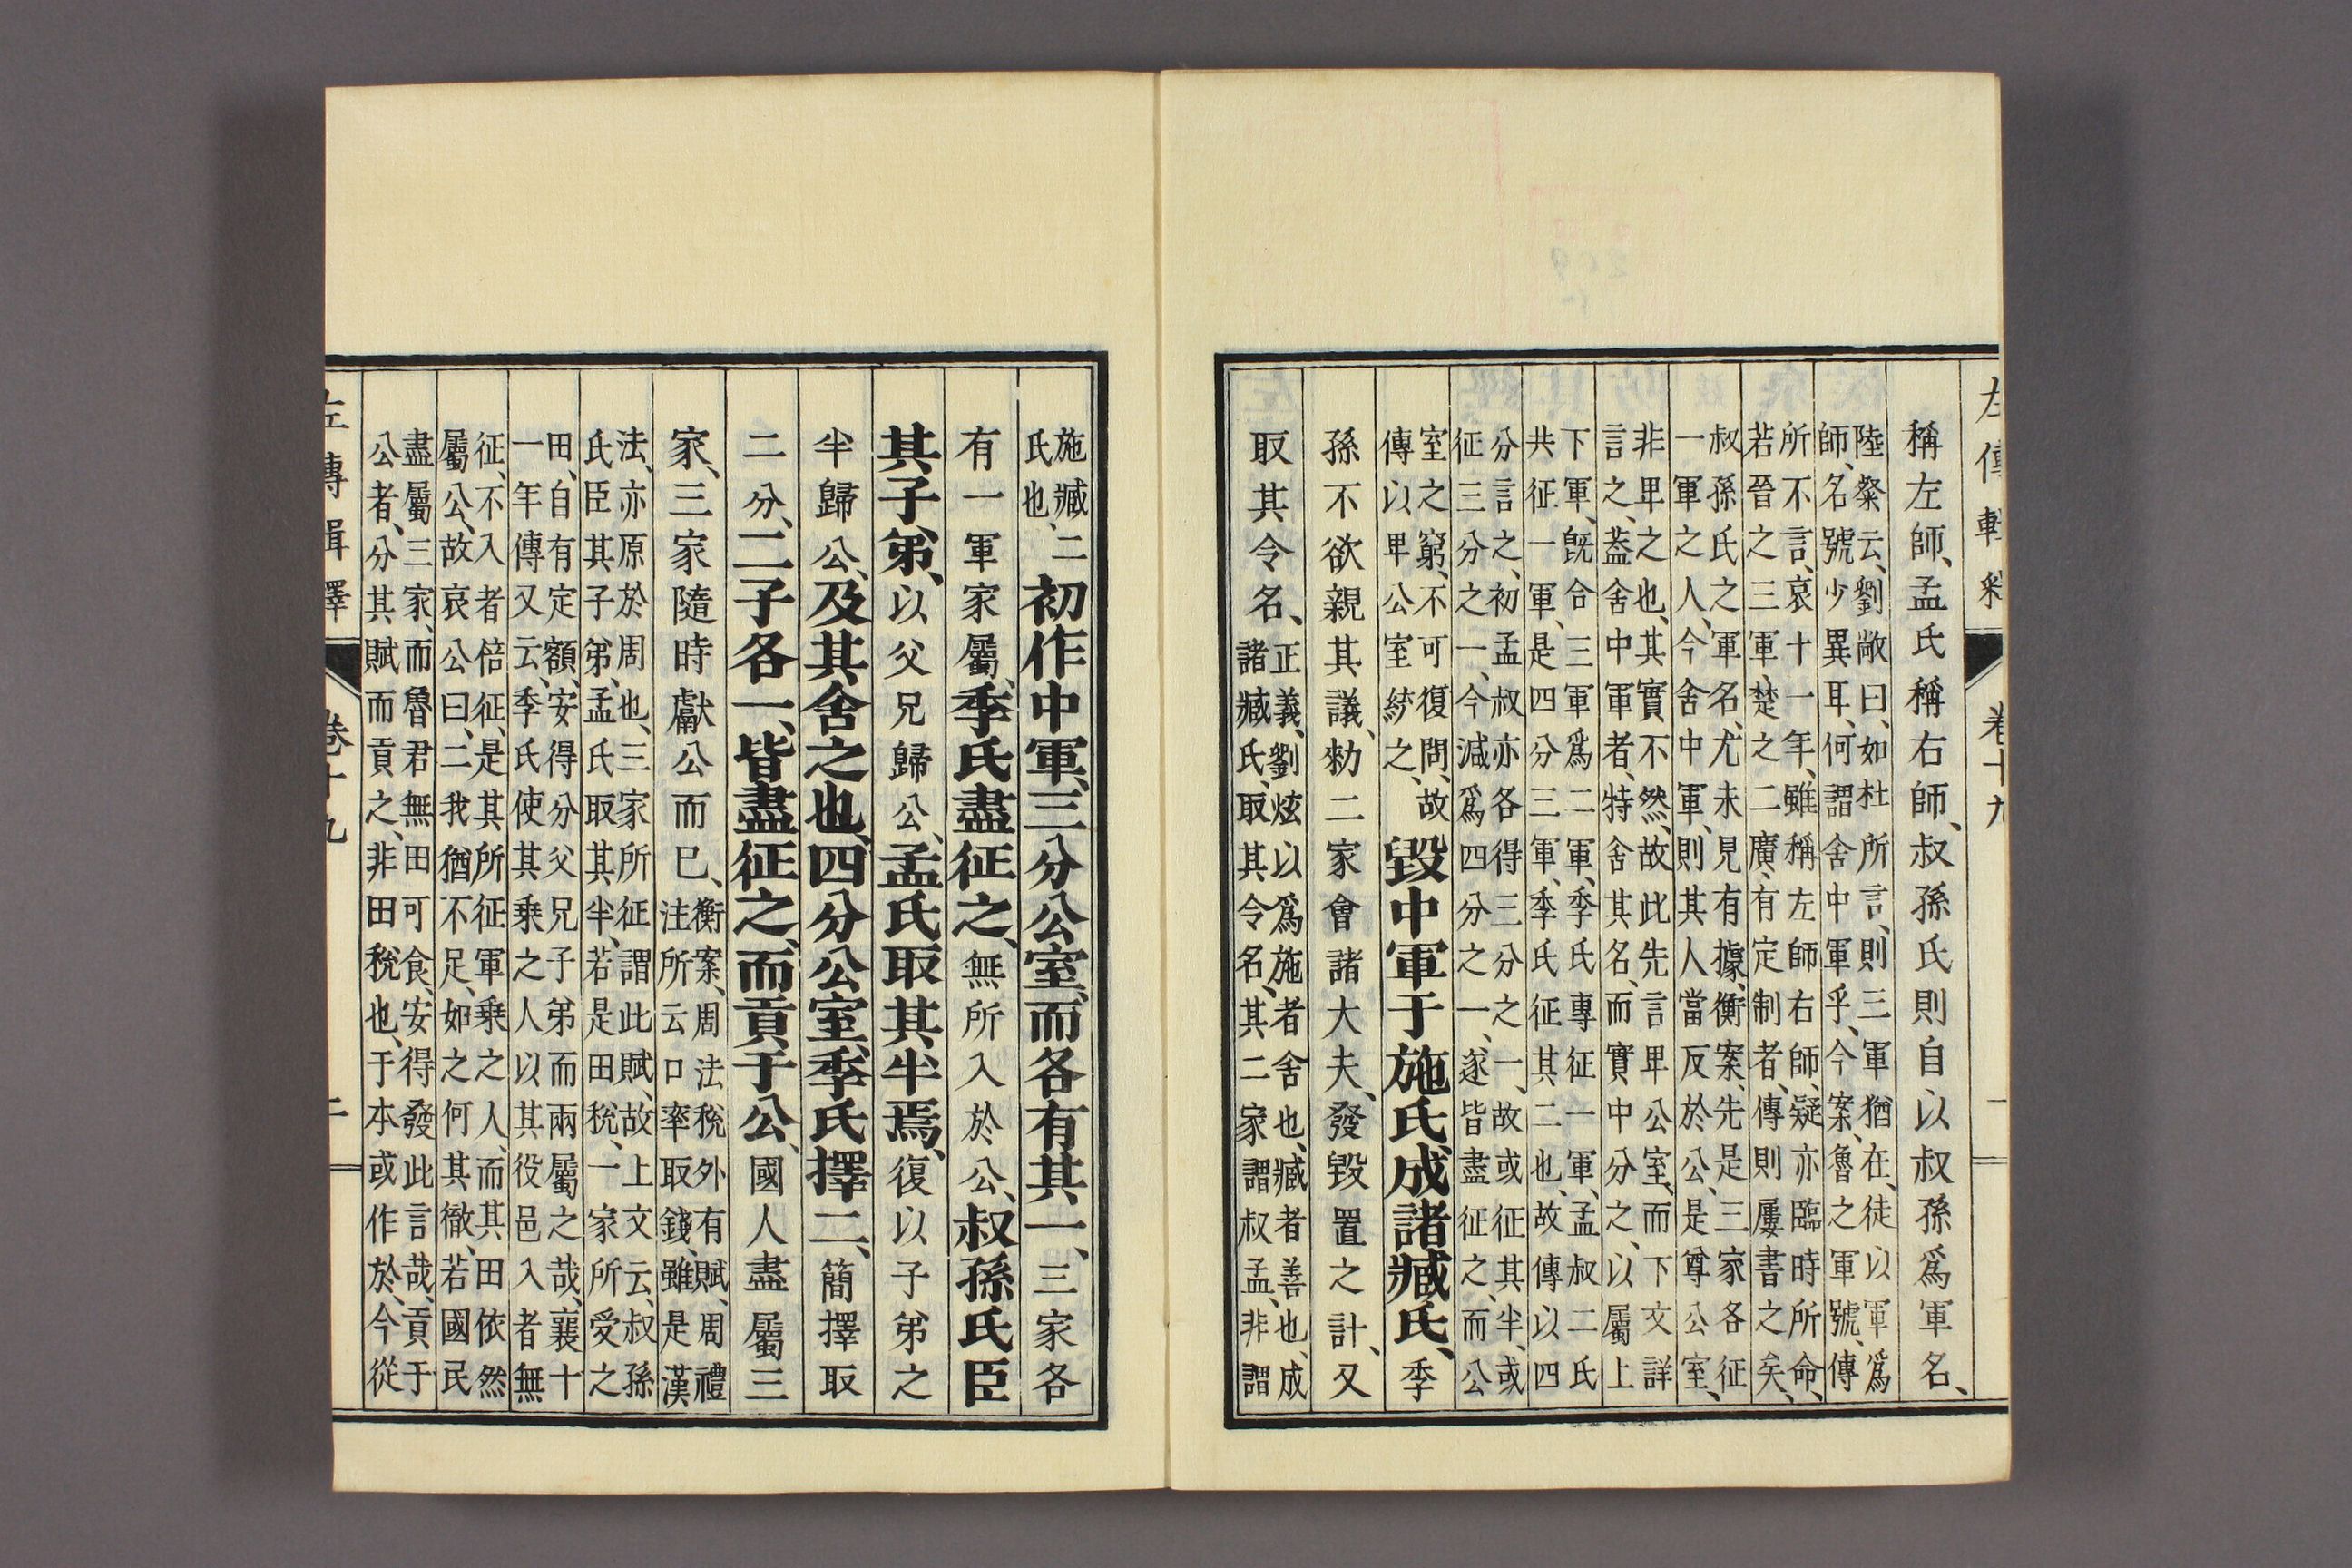 左傳輯釋
卷十九
一
稱左師、孟氏稱右師、叔孫氏則自以叔孫爲軍名、
陸粲云、劉敞曰、如杜所言、則三軍猶在、徒以軍爲
師、名號少異耳、何謂舍中軍乎、今案、魯之軍號、傳
所不言、哀十一年、雖稱左師右師、疑亦臨時所命、
若晉之三軍、楚之二廣、有定制者、傳則屢書之矣、
叔孫氏之軍名、尤未見有據、衡案、先是三家各征
一軍之人、今舍中軍、則其人當反於公、是尊公室、
非卑之也、其實不然、故此先言卑公室、而下文詳
言之、葢舍中軍者、特舍其名、而實中分之、以屬上
下軍、旣合三軍爲二軍、季氏專征一軍、孟叔二氏
共征一軍、是四分三軍、季氏征其二也、故傳以四
分言之、初孟叔亦各得三分之一、故或征其半、或
征三分之一、今減爲四分之一、遂皆盡征之、而公
室之窮、不可復問、故
傳以卑公室統之、
毀中軍于施氏、成諸臧氏、季
孫不欲親其議、勑二家會諸大夫、發毀置之計、又
取其令名、
正義、劉炫以爲施者舍也、臧者善也、成
諸臧氏、取其令名、其二家謂叔孟、非謂
施臧、二
氏也、
初作中軍、三分公室、而各有其一、三家各
有一軍家屬、季氏盡征之、無所入於公、叔孫氏臣
其子弟、以父兄歸公、孟氏取其半焉、復以子弟之
半歸公、及其舍之也、四分公室、季氏擇二、簡擇取
二分、二子各一、皆盡征之、而貢于公、國人盡屬三
家、三家隨時獻公而已、
衡案、周法、稅外有賦、周禮
注所云口率取錢、雖是漢
法、亦原於周也、三家所征謂此賦、故上文云、叔孫
氏臣其子弟、孟氏取其半、若是田稅、一家所受之
田、自有定額、安得分父兄子弟而兩屬之哉、襄十
一年傳又云、季氏使其乘之人以其役邑入者無
征、不入者倍征、是其所征軍乘之人、而其田依然
屬公、故哀公曰、二我猶不足、如之何其徹、若國民
盡屬三家、而魯君無田可食、安得發此言哉、貢于
公者、分其賦而貢之、非田稅也、于本或作於、今從
左傳輯釋
卷十九
二